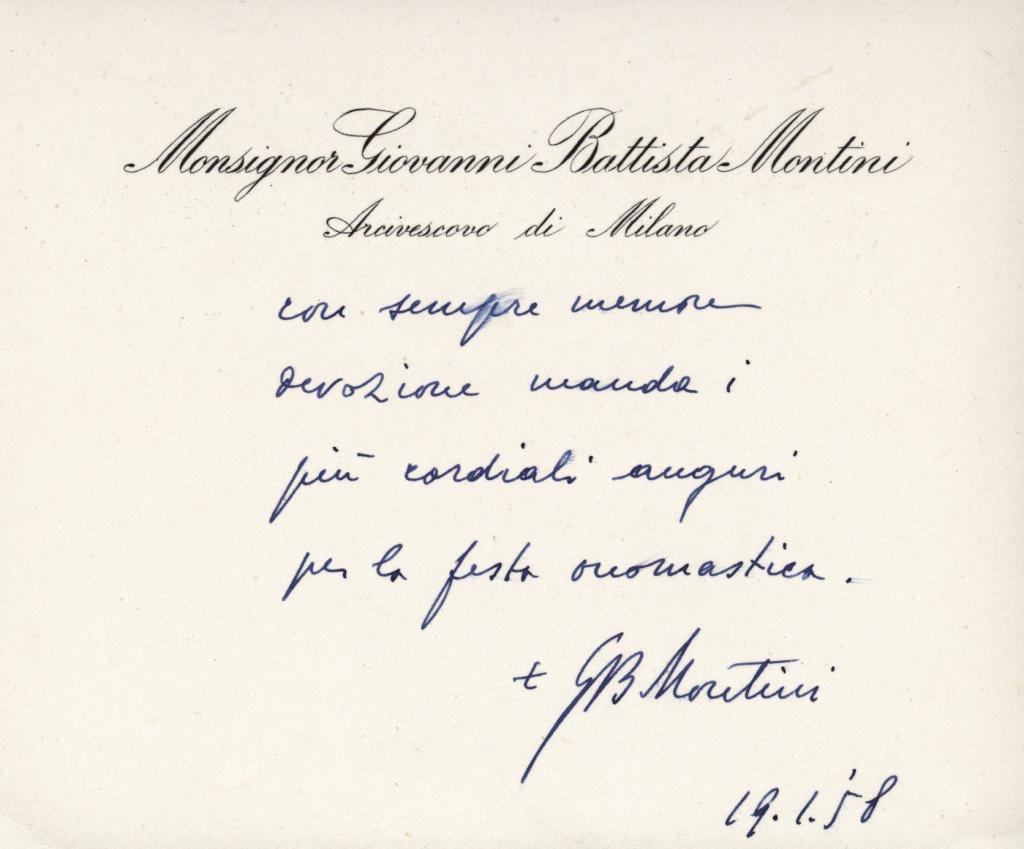 Monsignor Giovanni Battista Montini
Arcivescovo di Milano
con sempre memore
devozione manda i
più cordiali auguri
per la festa onomastica.
+ GB Montini
19.1.'58